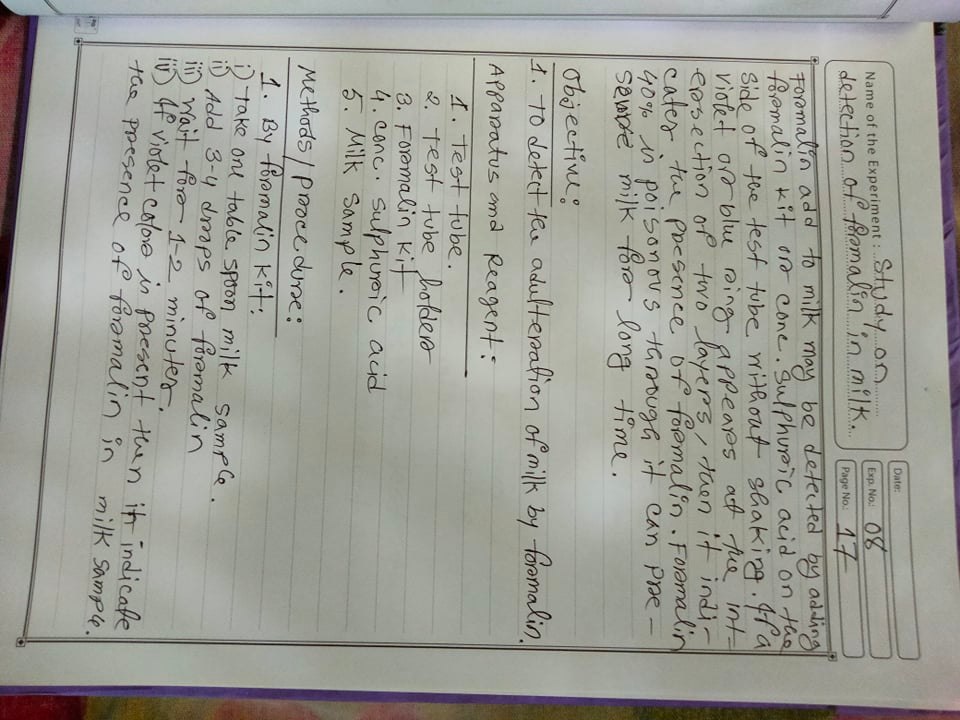 Name of the Experiment : Study on
detection of formalin in milk.
Date:
Exp. No.: 08
Page No.: 17
Formalin add to milk may be detected by adding
formalin kit or conc. Sulphuric acid on the
side of the test tube without shaking. If a
violet or blue ring appears at the int-
ersection of two layers, then it indi-
cates the presence of formalin. Formalin
40% is poisonous through it can pre-
serve milk for long time.
Objective:
1. To detect the adulteration of milk by formalin.
Apparatus and Reagent:
1. Test tube.
2. Test tube holder
3. Formalin kit
4. conc. sulphuric acid
5. Milk sample.
Methods/procedure:
1. By formalin kit:
i) Take one table spoon milk sample.
ii) Add 3-4 drops of formalin
iii) Wait for 1-2 minutes.
iv) If violet color is present then it indicate
the presence of formalin in milk sample.